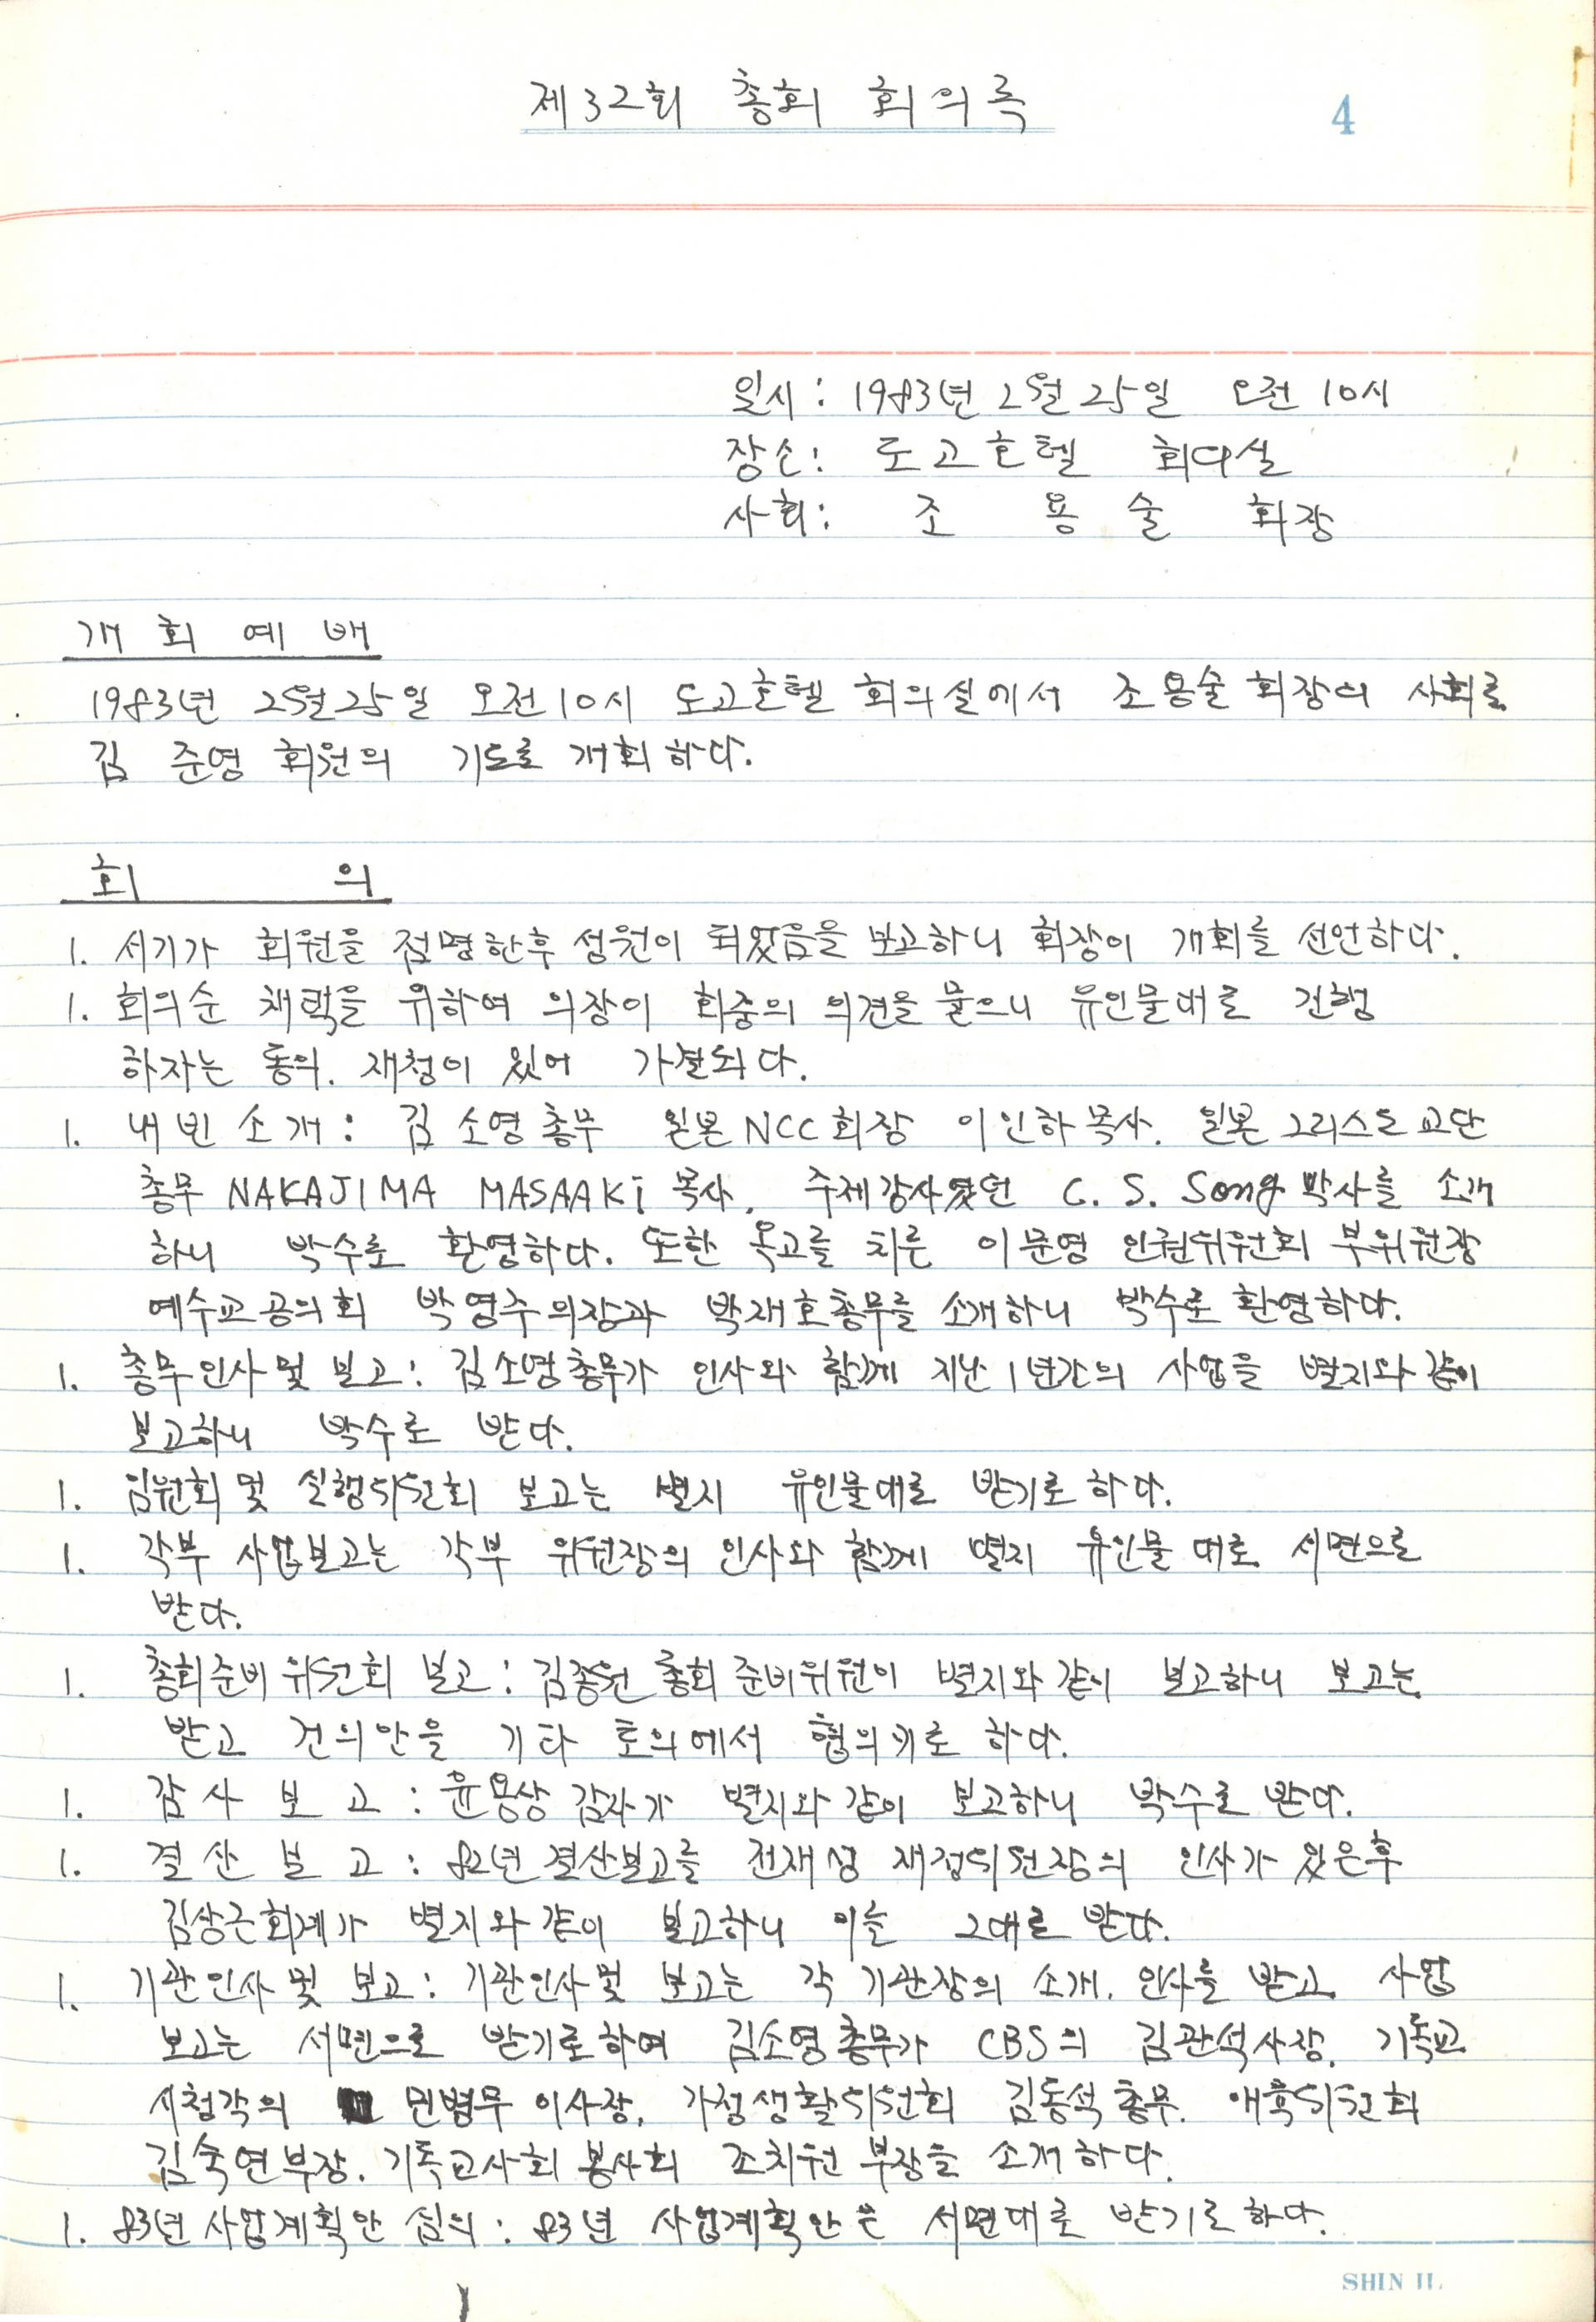 제32회 총회 회의록
4
일시: 1983년 2월 25일 오전 10시
장소: 도고호텔 회의실
사회: 조 용 술 회장
개 회 예 배
1983년 2월 25일 오전 10시 도고호텔 회의실에서 조용술 회장의 사회로
김 준영 회원의 기도로 개회하다.
회 의
1. 서기가 회원을 점명한후 성원이 되었음을 보고하니 회장이 개회를 선언하다.
1. 회의순 채택을 위하여 의장이 회중의 의견을 물으니 유인물대로 진행
하자는 동의. 재청이 있어 가결되다.
1. 내빈 소개: 김소영총무 일본NCC회장 이인하목사. 일본그리스도교단
총무 NAKAJIMA MASAAKi 목사. 주제강사였던 C. S. Song 박사를 소개
하니 박수로 환영하다. 또한 옥고를 치른 이문영 인권위원회 부위원장
예수교공의회 박영주의장과 박재호총무를 소개하니 박수로 환영하다.
1. 총무인사 및 보고: 김소영총무가 인사와 함께 지난 1년간의 사업을 별지와 같이
보고하니 박수로 받다.
1. 임원회 및 실행위원회 보고는 별지 유인물대로 받기로 하다.
1. 각부 사업보고는 각부 위원장의 인사와 함께 별지 유인물 대로 서면으로
받다.
1. 총회준비위원회 보고: 김종원 총회준비위원이 별지와 같이 보고하니 보고는
받고 건의안을 기타 토의에서 협의키로 하다.
1. 감 사 보 고 : 윤용상 감사가 별지와 같이 보고하니 박수로 받다.
1. 결 산 보 고 : 82년 결산보고를 전재성 재정위원장의 인사가 있은후
김상근회계가 별지와 같이 보고하니 이를 그대로 받다.
1. 기관인사 및 보고: 기관인사 및 보고는 각 기관장의 소개. 인사를 받고 사업
보고는 서면으로 받기로하여 김소영총무가 CBS의 김관석사장. 기독교
시청각의 민병무 이사장. 가정생활위원회 김동석 총무. 애휼위원회
김숙연부장. 기독교사회봉사회 조치원 부장을 소개하다.
1. 83년 사업계획안 심의: 83년 사업계획안은 서면대로 받기로하다.
SHIN IL.